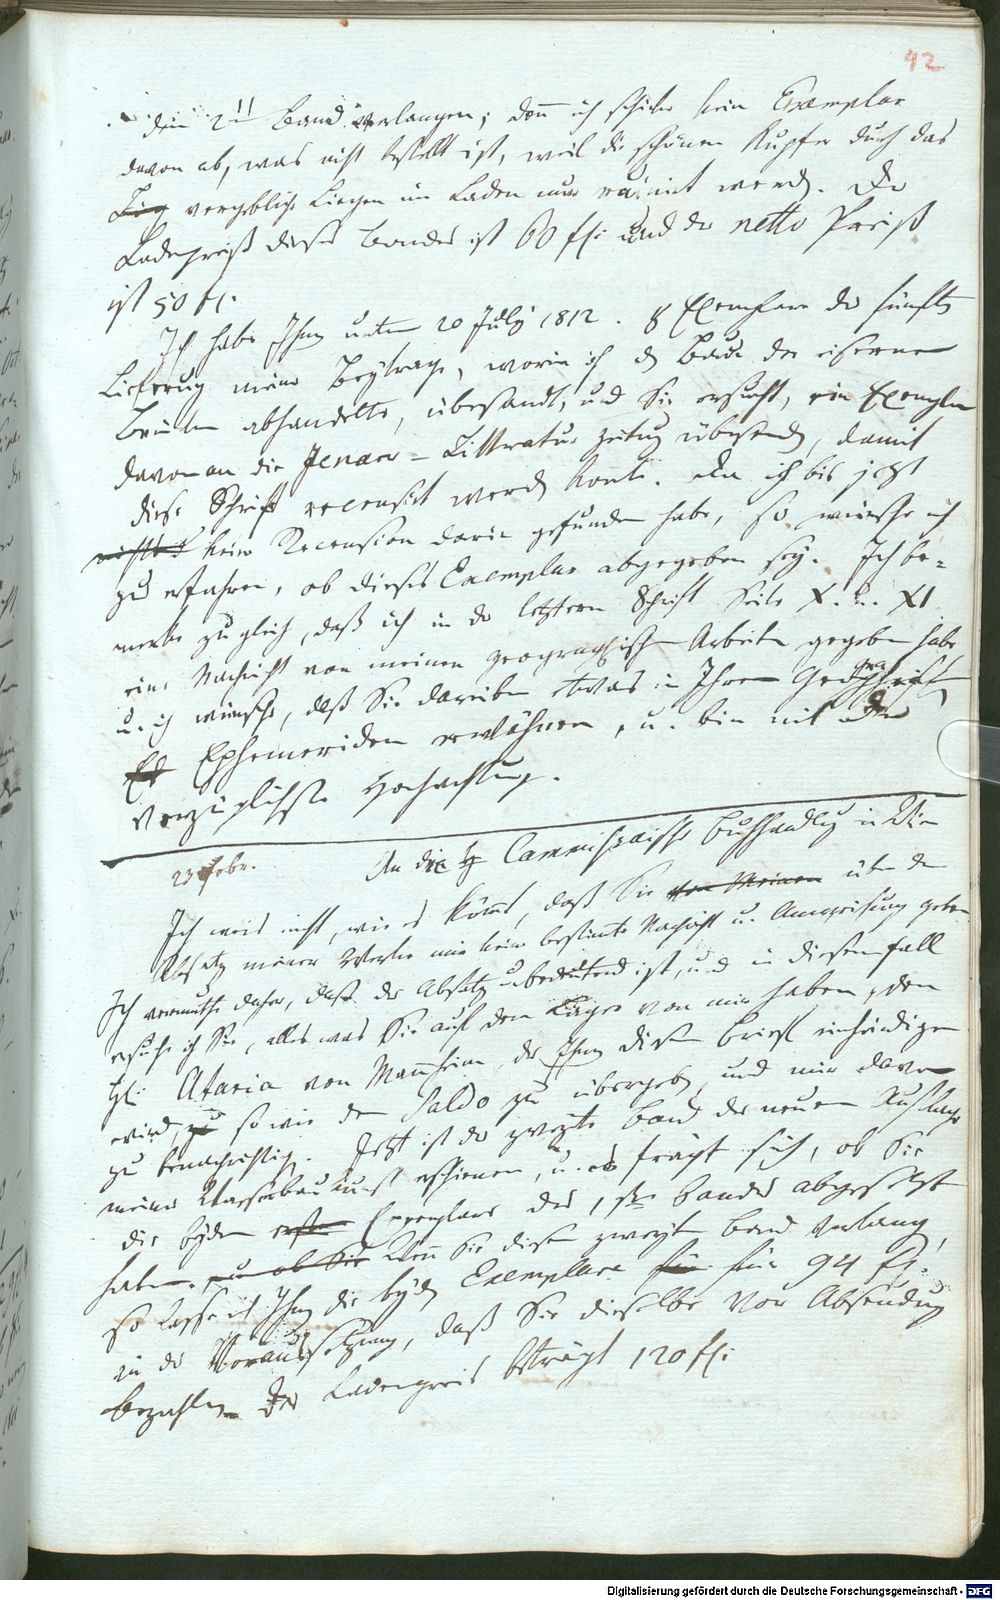 42
den 2ten Band verlangen; denn ich schicke kein Exemplar
davon ab, was nicht bestellt ist, weil die schönen Kupfer durch das
vergebliche Liegen im Laden nur ruinirt werden. Der
Ladenpreiß dieses Bandes ist 60 fl: und der netto Preiß
ist 50 fl.
Ich habe Ihnen unterm 20 July 1812. 8 Exemplare der fünften
Lieferung meiner Beyträge, worin ich den Bau der eisernen
Brücken abhandelte, übersandt, und Sie ersucht, ein Exemplar
davon an die Jenaer-Litteratur Zeitung übersenden, damit
diese Schrift recensirt werden konte. Da ich bis jezt
keine Recension darin gefunden habe, so wünsche ich
zu erfahren, ob dieses Exemplar abgegeben sey. Ich be=
merke zugleich, daß ich in der letztern Schrift Seite X. u. XI
eine Nachricht von meinen geographischen Arbeiten gegeben habe
u. ich wünsche, daß Sie darüber etwas in Ihren Geographischen
Ephemeriden erwähnen, u. bin mit der
vorzüglichsten Hochachtung.
23 Febr. An die Cammeralische Buchhandlung in Wien
Ich weis nicht, wie es kömmt, daß Sie über den
Absatz meiner Werke mir keine bestimte Nachricht u. Anweisung geben
Ich vermuthe daher, daß der Absatz unbedeutend ist, und in diesem Fall
ersuche ich Sie, alles was Sie auf dem Lager von mir haben, dem
H: Artaria von Mannheim, der Ihnen diesen Brief einhändigen
wird, so wie den Saldo zu übergeben, und mir davon
zu benachrichtigen. Jezt ist der zweyte Band der neuen Auflage
meiner Wasserbaukunst erschienen, u. es frägt sich, ob Sie
die beyden Exemplare des 1sten Bandes abgesetzt
haben. Wenn Sie diesen zweyten Band verlangen,
so lasse ich Ihnen die beyden Exemplare für 94 fl.
in der Voraussetzung, daß Sie dieselbe vor Absendung
bezahlen. Der Ladenpreis beträgt 120 fl:
Digitalisierung gefördert durch die Deutsche Forschungsgemeinschaft - DFG